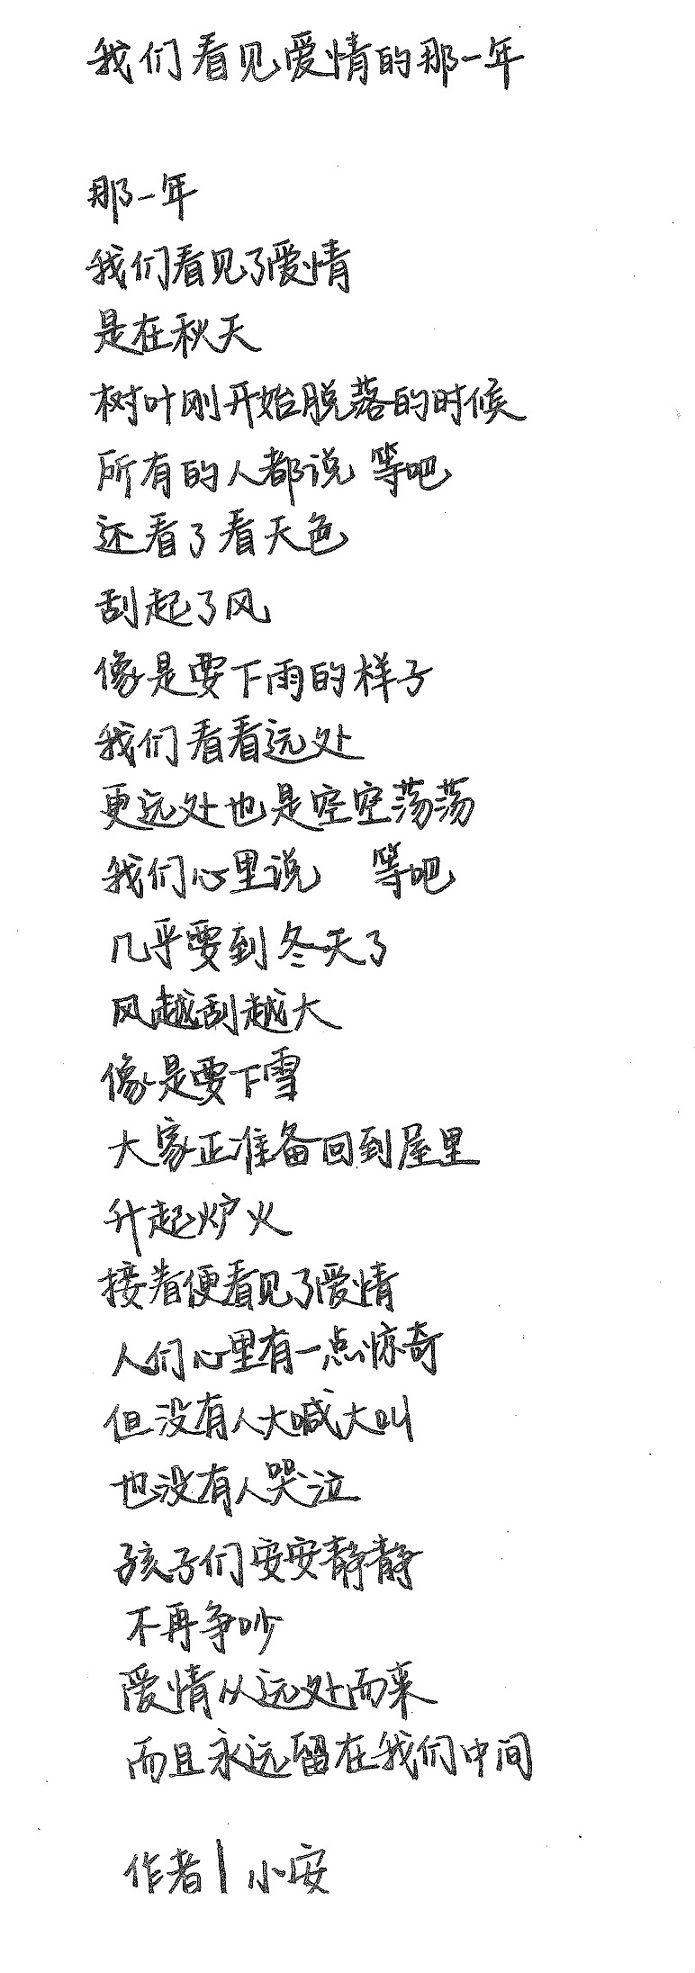 我们看见爱情的那一年
那一年
我们看见了爱情
是在秋天
树叶刚开始脱落的时候
所有的人都说 等吧
还看了看天色
刮起了风
像是要下雨的样子
我们看看远处
更远处也是空空荡荡
我们心里说 等吧
几乎要到冬天了
风越刮越大
像是要下雪
大家正准备回到屋里
升起炉火
接着便看见了爱情
人们心里有一点惊奇
但没有人大喊大叫
也没有人哭泣
孩子们安安静静
不再争吵
爱情从远处而来
而且永远留在我们中间
作者|小安